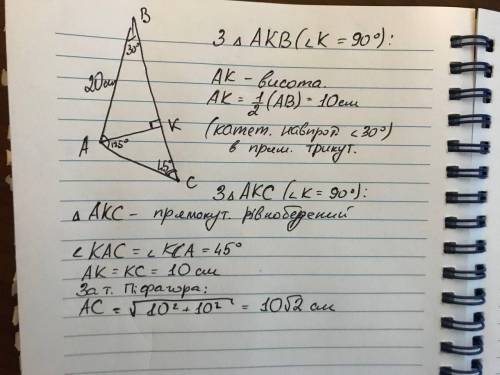 B
30°
20см
A
135°
K
45°
C
З △ AKB (∠K = 90°):
AK - висота.
AK = 1/2 (AB) = 10см
(катет. навпрот ∠30°)
в прям. трикут.
З △ AKC (∠K = 90°):
△ AKC - прямокут. рівнобедрений
∠KAC = ∠KCA = 45°
AK = KC = 10 см
За т. Піфагора:
AC = √10² + 10² = 10√2 см